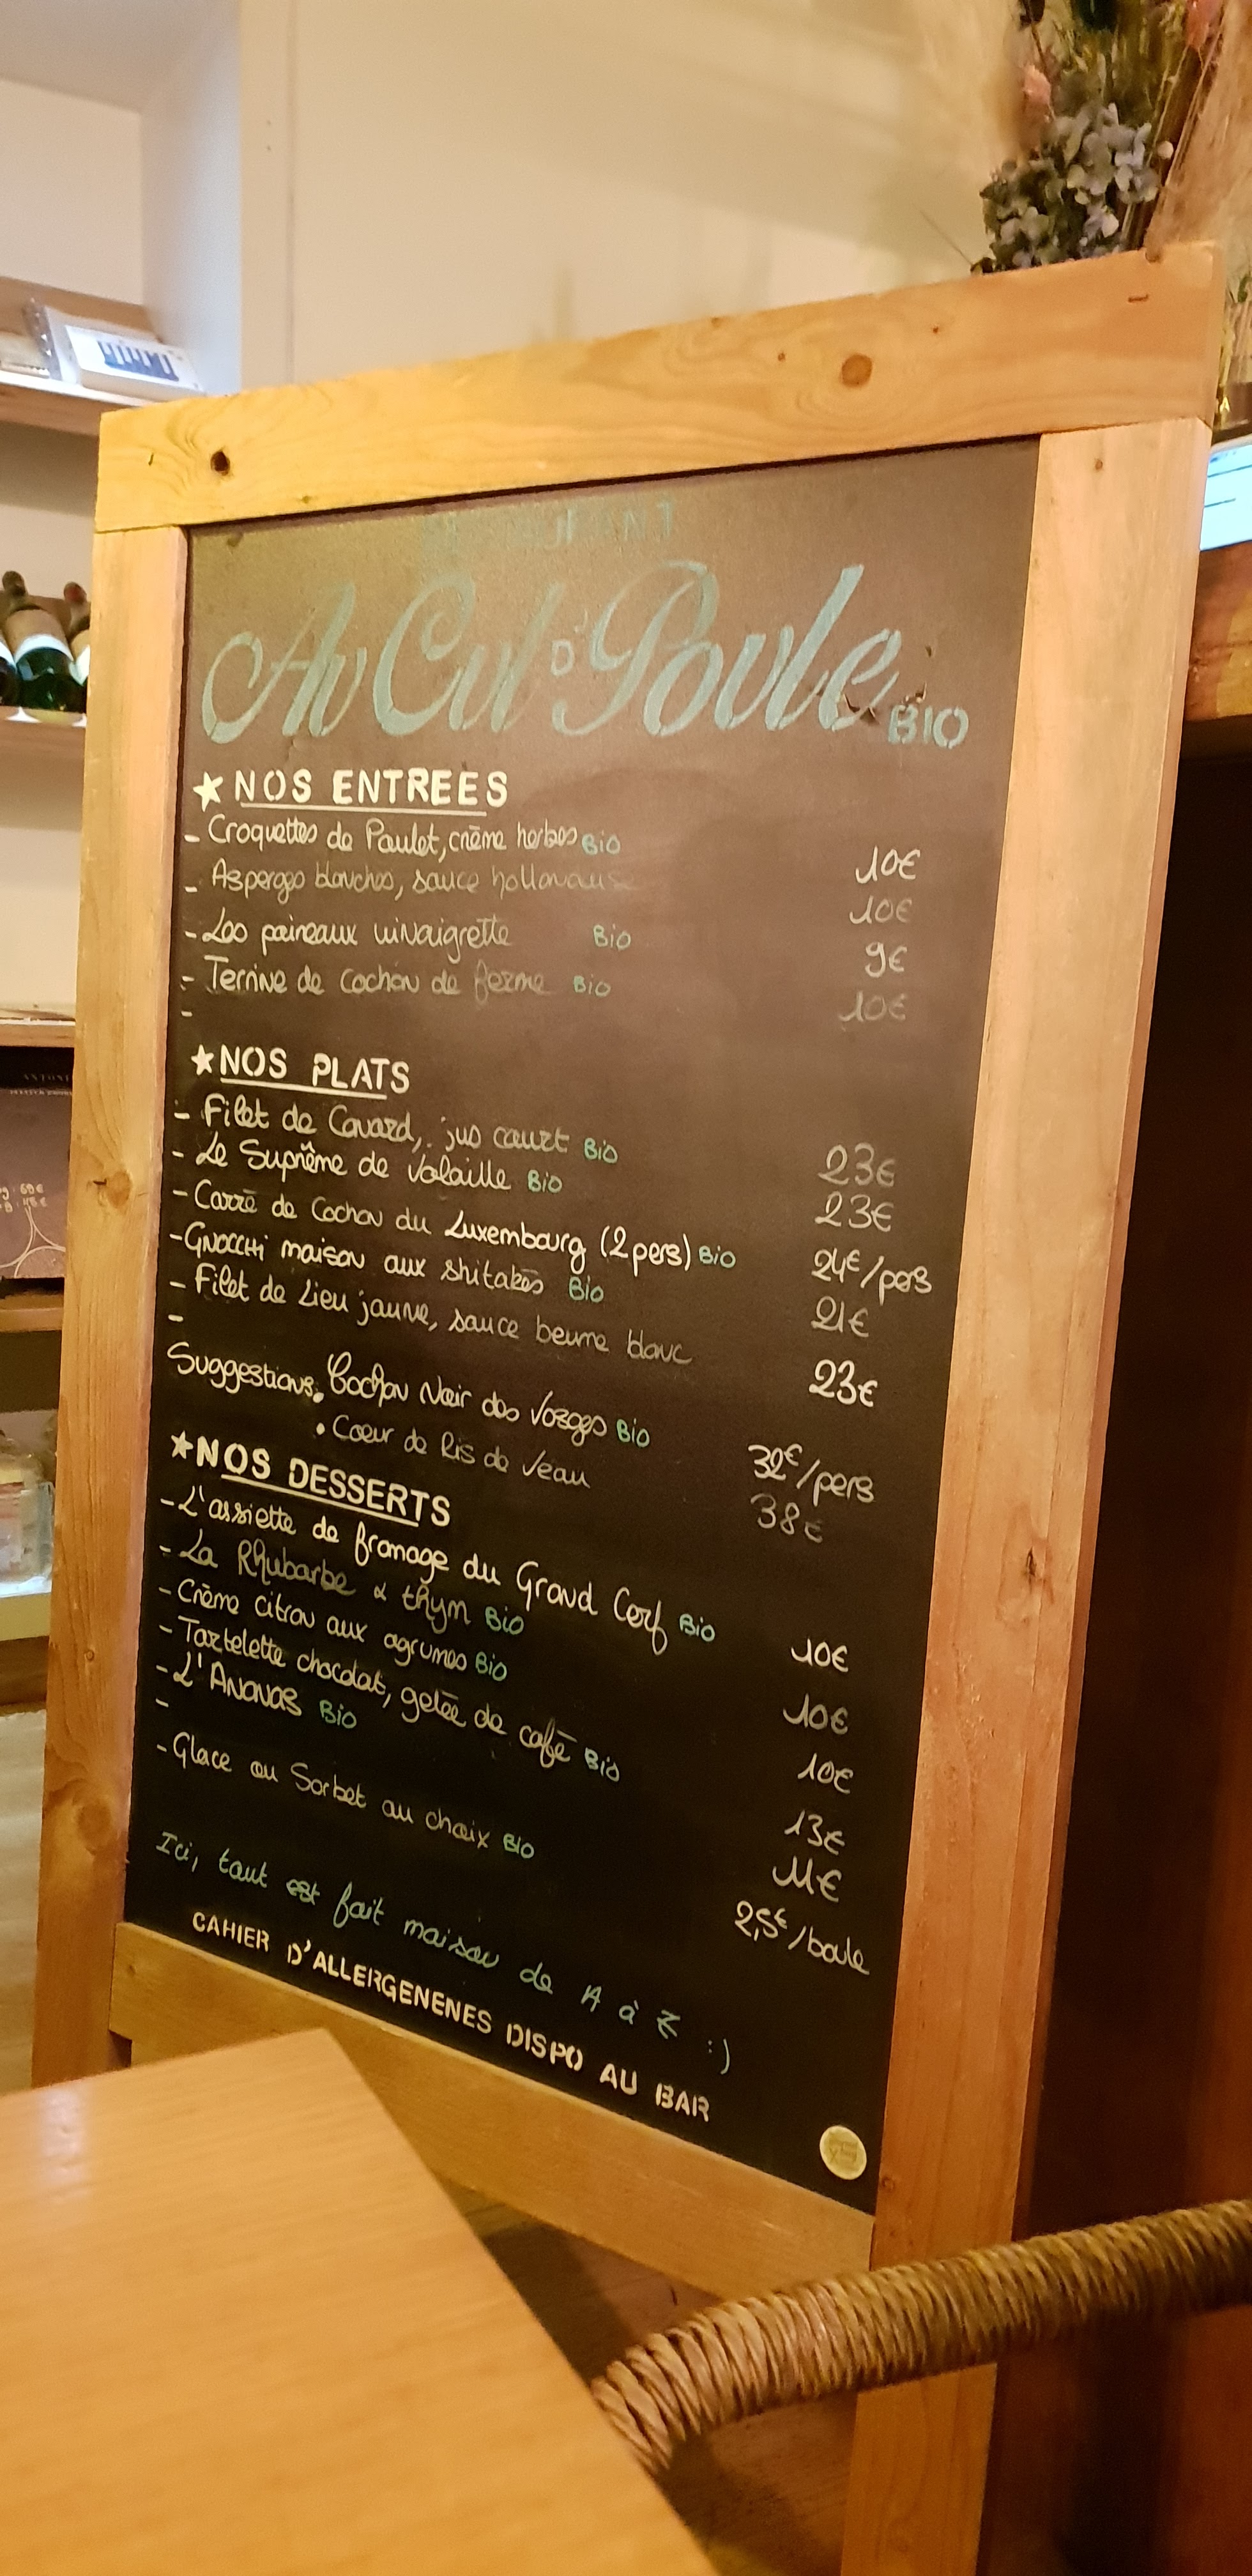 Au Cul D' Poule BIO
★ NOS ENTREES
- Croquettes de Poulet, crème herbes Bio 10€
- Asperges blanches, sauce hollandaise 10€
- Les poireaux vinaigrette Bio 9€
- Terrine de cochon de ferme Bio 10€
-
★ NOS PLATS
- Filet de Canard, jus court Bio 23€
- Le Suprême de Volaille Bio 23€
- Carré de Cochon du Luxembourg (2 pers) Bio 24€/pers
- Gnocchi maison aux shitakés Bio 21€
- Filet de Lieu jaune, sauce beurre blanc 23€
-
Suggestions • Cochon Noir des Vosges Bio 32€/pers
• Coeur de Ris de Veau 38€
★ NOS DESSERTS
- L'assiette de fromage du Grand Cerf Bio 10€
- La Rhubarbe & thym Bio 10€
- Crème citron aux agrumes Bio 10€
- Tartelette chocolat, gelée de café Bio 13€
- L'Ananas Bio 11€
-
- Glace ou Sorbet au choix Bio 2,5€/boule
Ici, tout est fait maison de A à Z :)
CAHIER D'ALLERGENENES DISPO AU BAR